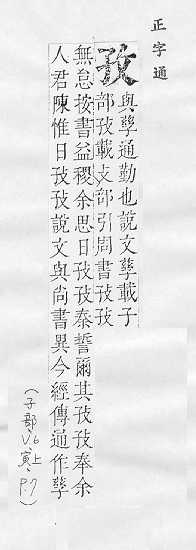 正字通
孜
與孳通勤也說文孳載子
部孜載攴部引周書孜孜
無怠按書益稷余思日孜孜泰誓爾其孜孜奉余
人君陳惟日孜孜說文與尚書異今經傳通作孳
(子部 V.6 寅上 P.7)